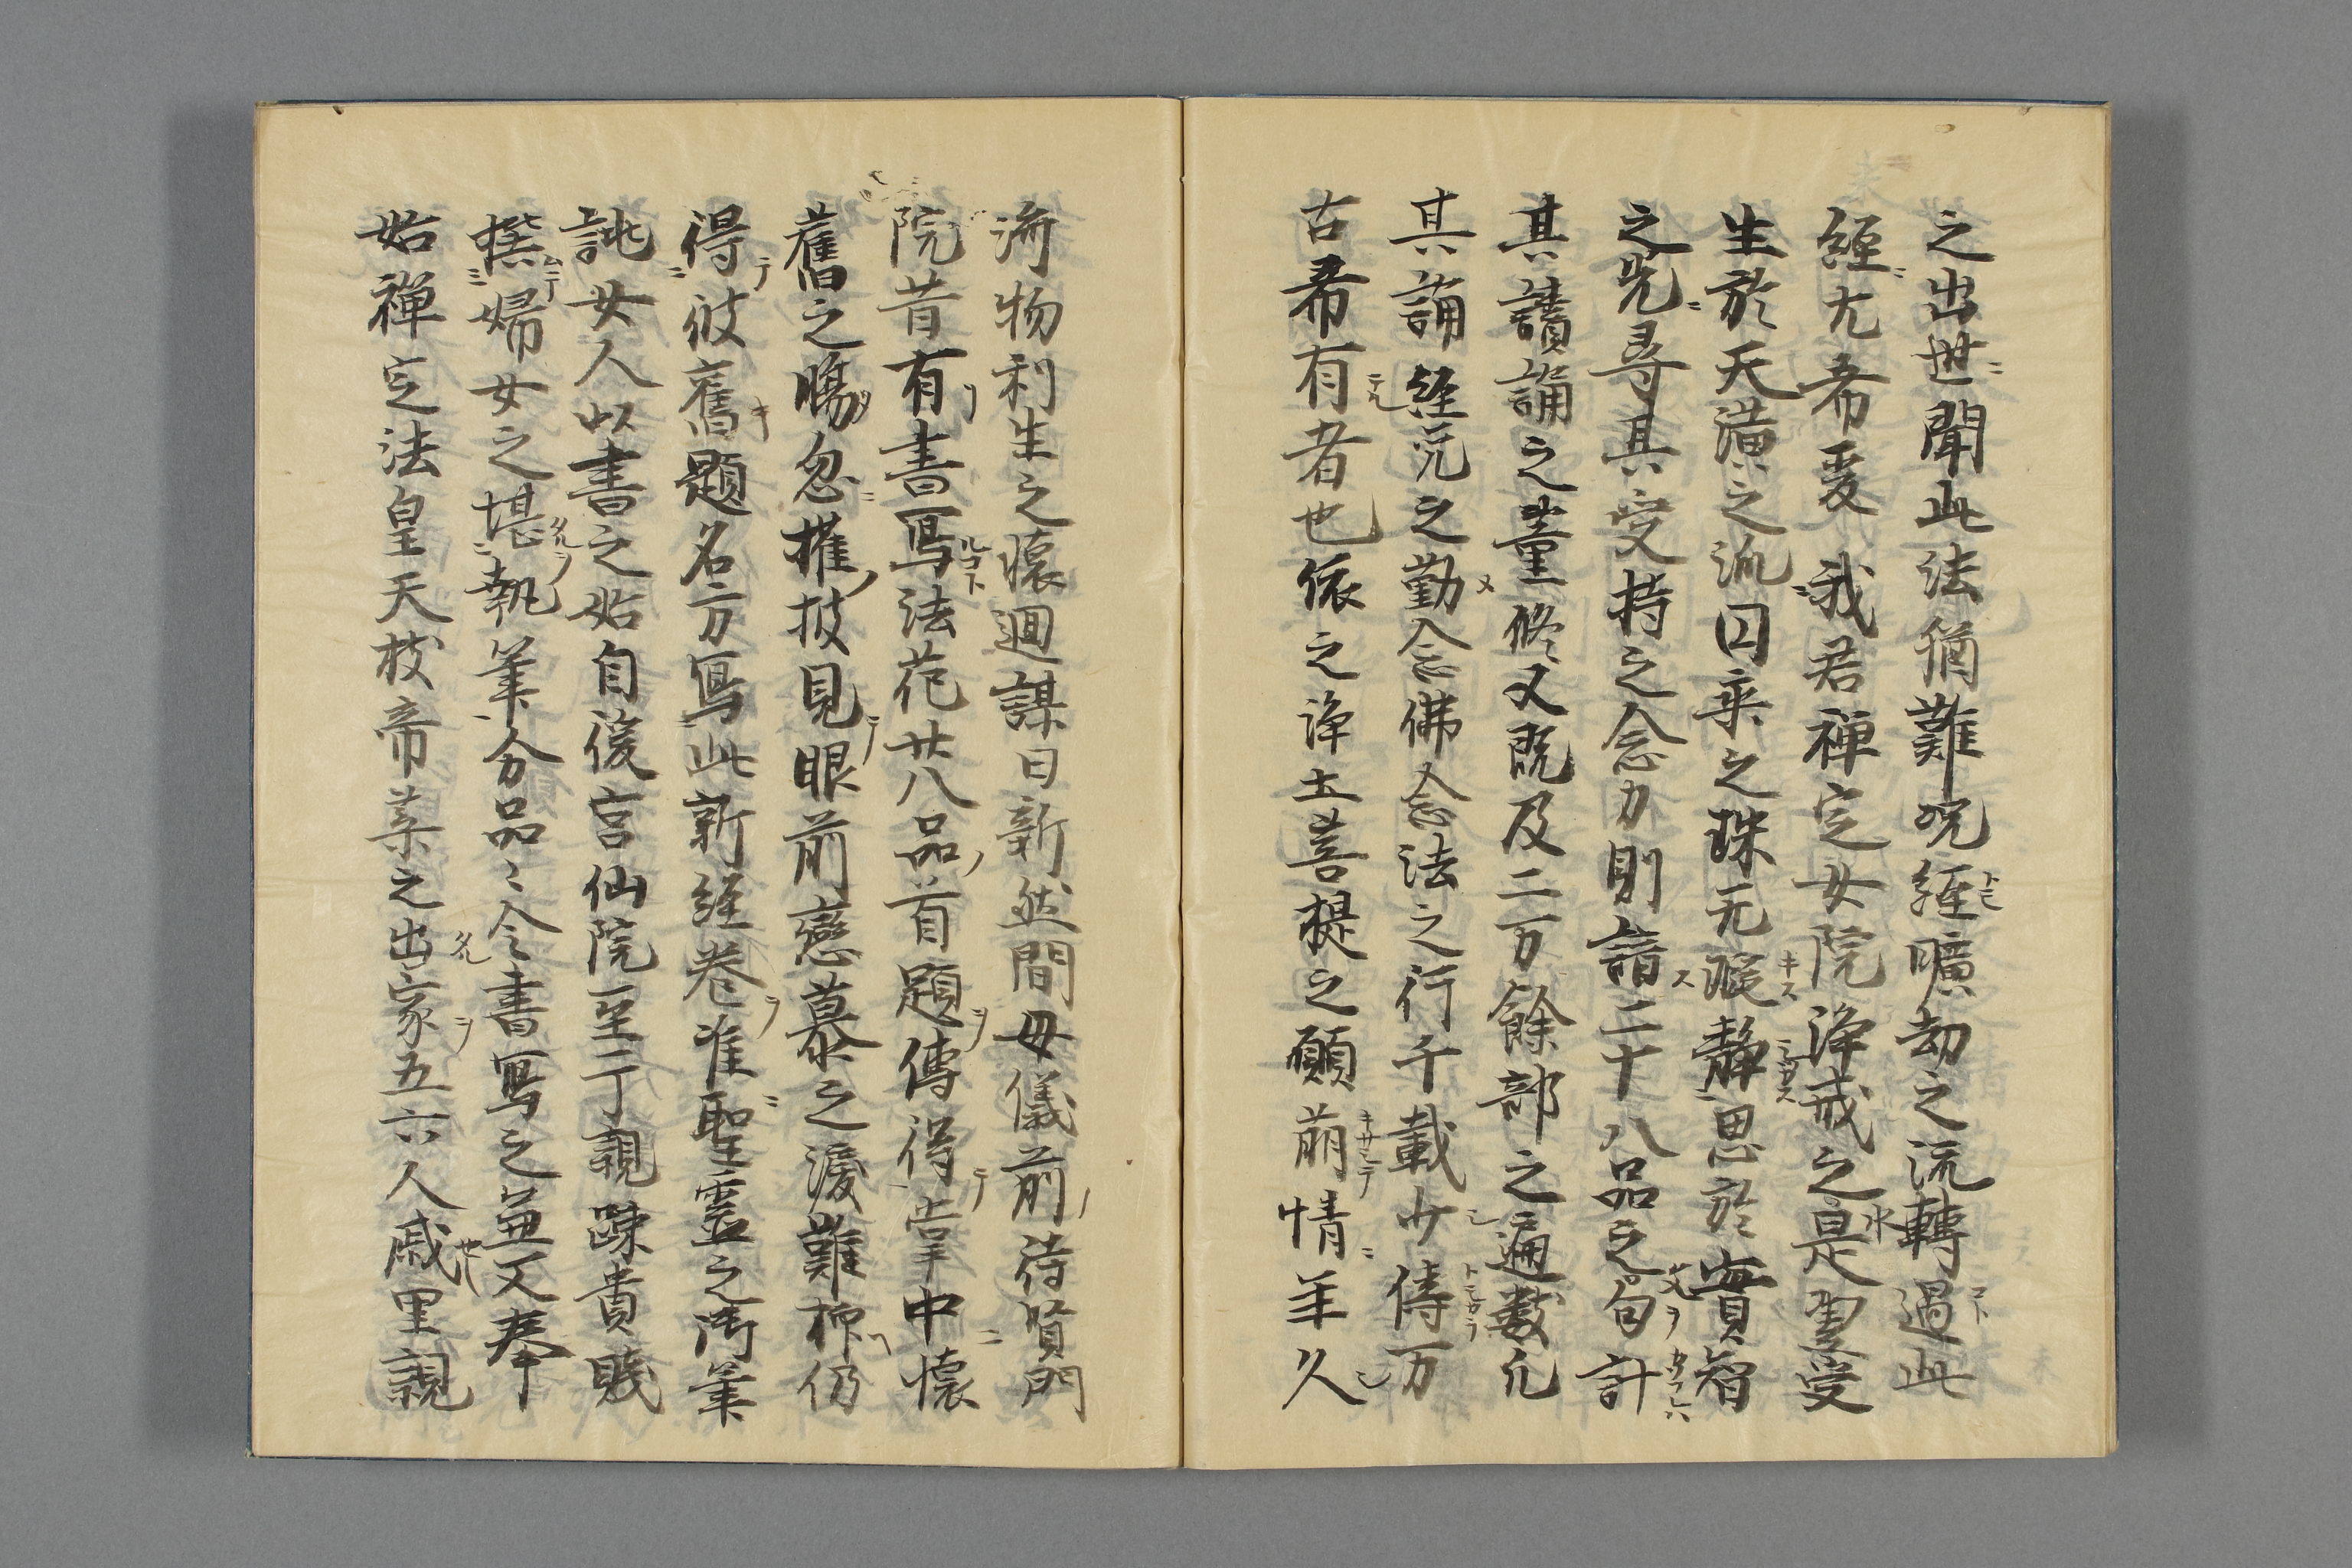 之出世ニ聞此法猶難況經曠劫之流轉遇此
經ニ尤希爰我君禅定女院浄戒之是翼受
生於天潢之派因乗之珠无瑕静思於實智
之光ニ尋其受持之念力則諳二十八品之文句計
其讀誦之薫修又既及二万餘部之遍數凡
其誦經咒之勤念佛念法之行千載少儔万
古希有者也依之浄土菩提之願萠情ニ年久
済物利生之懐廻謀日新然間母儀前待賢門
院昔有書寫法花廿八品首題傳得掌中懐
舊之膓忽摧披見眼前戀慕之涙難抑仍
得彼舊題名方寫此新經巻准聖靈之御筆
誂女人以書之始自後宮仙院至于親踈貴賎
撰婦女之堪執筆分品〻令書寫之並又奉
始禅定法皇天枝帝葉之出家五六人戚里親